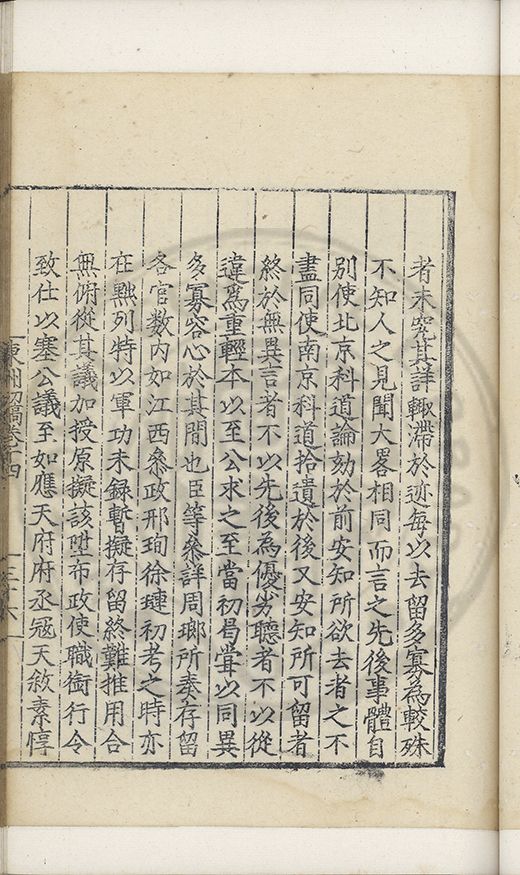 者未究其詳輙滯於迹每以去留多寡為較殊
不知人之見聞大畧相同而言之先後事體自
別使北京科道論劾於前安知所欲去者之不
盡同使南京科道拾遺於後又安知所可留者
終於無異言者不以先後為優劣聽者不以從
違爲重輕本以至公求之至當初曷嘗以同異
多寡容心於其間也臣等叅詳周瑯所奏存留
各官數內如江西叅政邢珣徐璉初考之時亦
在黜列特以軍功未録暫擬存留終難推用合
無俯從其議加授原擬該陞布政使職銜行令
致仕以塞公議至如應天府府丞冦天敘素惇
東州初稿卷十四
三十六